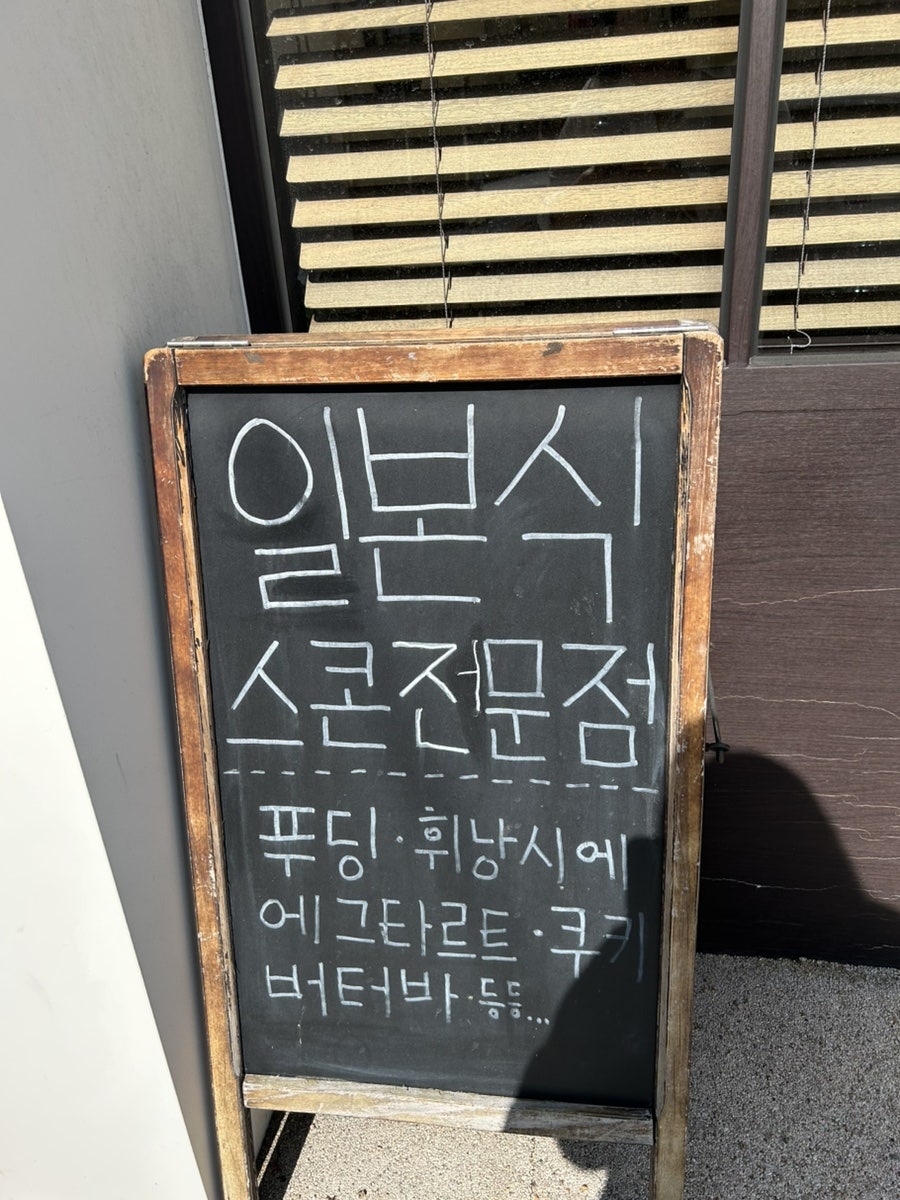 일본식
스콘전문점
푸딩·휘낭시에
에그타르트·쿠키
버터바·등등...